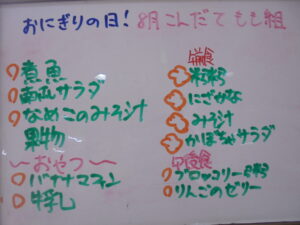 おにぎりの日! 8月こんだて もも組
煮魚
南瓜サラダ
なめこのみそ汁
果物
〜おやつ〜
バナナマフィン
牛乳
午前食
にざかな
みそ汁
かぼちゃサラダ
午後食
ブロッコリー粥
りんごのゼリー